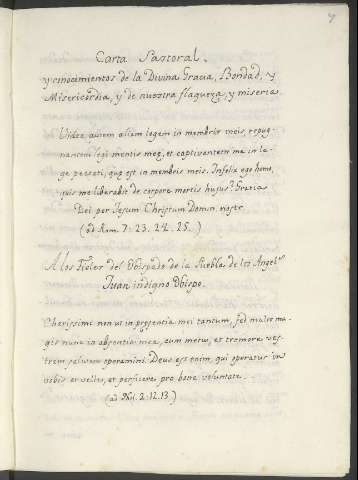 7
Carta Pastoral.
y conocimientos de la Divina Gracia, Bondad, y
Misericordia, y de nuestra flaqueza, y miseria.
Video autem aliam legem in membris meis, repug-
nantem legi mentis meę, et captivantem me in le-
ge peccati, quę est in membris meis. Infelix ego homo,
quis me liberabit de corpore mortis hujus? Gratia
Dei per Jesum Christum Domin. nostr.
(ad Rom. 7. 23. 24. 25.)
A los Fieles del Obispado de la Puebla de los Angeles
Juan indigno Obispo.
Cherissimi non ut in pręsentia mei tantum, sed multo ma-
gis nunc in absentia mea, cum metu, et tremore ves-
tram salutem operamini. Deus est enim, qui operatur in
vobis et velle, et perficere pro bona voluntate.
(ad Phil. 2. 12. 13.)